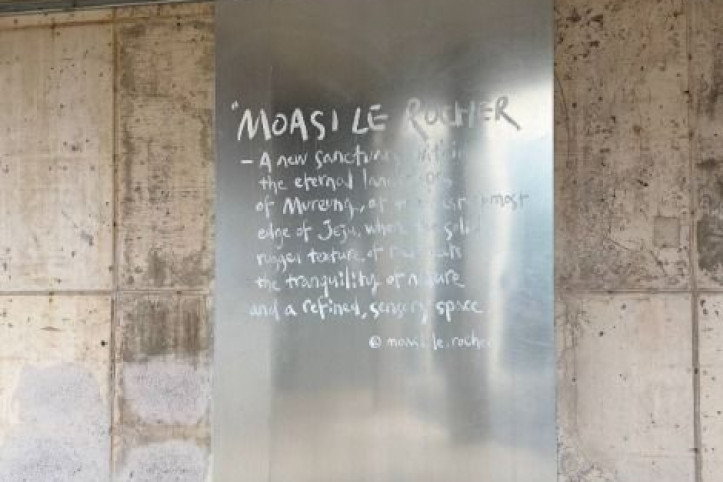 "MOASI LE ROCHER
- A new sanctuary within
the eternal landscapes
of Mureung, at the westernmost
edge of Jeju, where the solid
rugged texture of meets
the tranquility of nature
and a refined, sensory space
@moasi.le.rocher